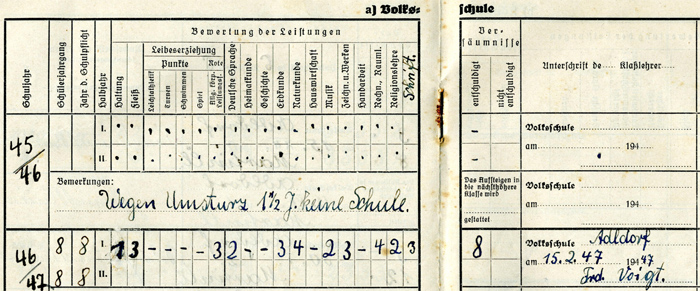 a) Volks= schule
Bewertung der Leistungen
Ver-
säumnisse
Schuljahr
Schülerjahrgang
Jahr d. Schulpflicht
Halbjahr
Haltung
Fleiß
Leibeserziehung
Punkte
Note
Leichtathletik
Turnen
Schwimmen
Spiel
Allg. körp.
Leistungsf.
Deutsche Sprache
Heimatkunde
Geschichte
Erdkunde
Naturkunde
Hauswirtschaft
Musik
Zeichn. u. Werken
Handarbeit
Rechn., Rauml.
Religionslehre
Schrift.
entschuldigt
nicht
entschuldigt
Unterschrift de Klaßlehrer
45/46
I. -
Volksschule
II. -
am 194
Bemerkungen:
Wegen Umsturz 1½ J. keine Schule.
Das Aufsteigen in
die nächsthöhere
Klasse wird
gestattet
Volksschule
am 194
46/47
8 8 I. 1 3 - - - - - 3 2 - - 3 4 - 2 3 - 4 2 3 8
Volksschule Adldorf
8 8 II.
am 15.2.47 1947
Frd. Voigt.